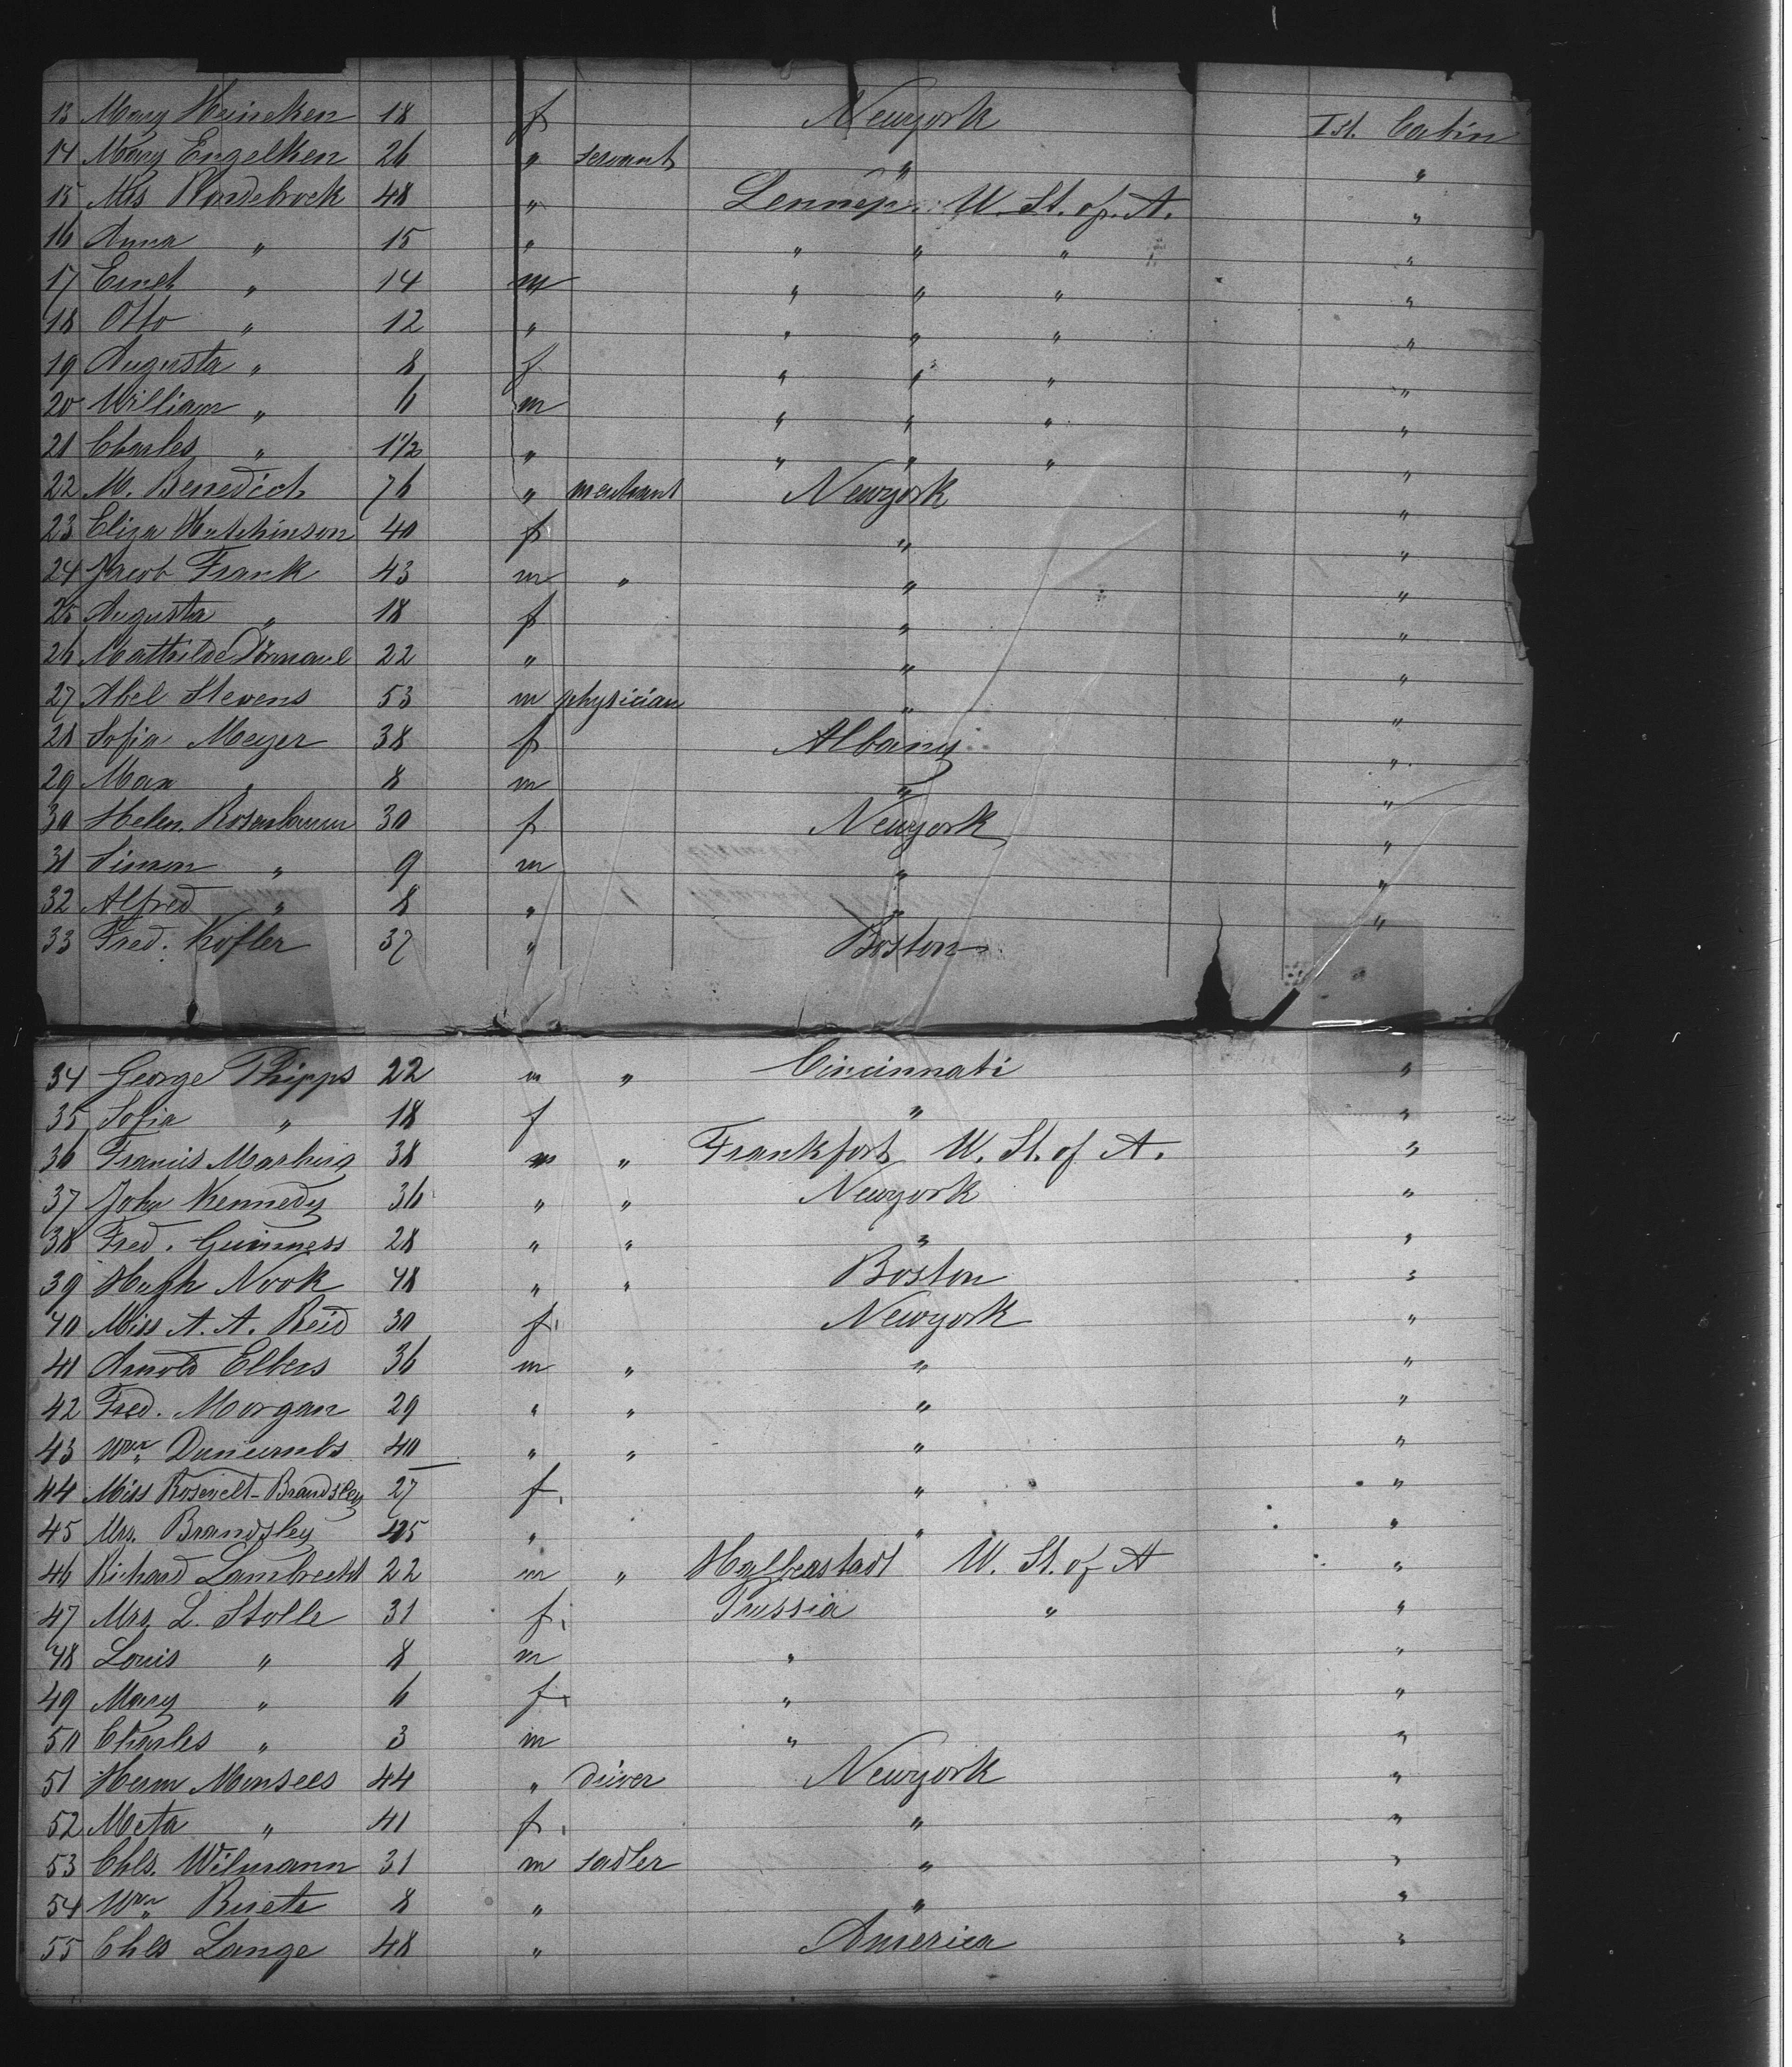 13 Mary Heineken 18 f Newyork Ist. Cabin
14 Mary Engelken 26 " servant " "
15 Mrs 48 " Lennep. U. St. of. A. "
16 Anna " 15 " " " " "
17 Ernst " 14 m " " " "
18 Otto " 12 " " " " "
19 Augusta " 8 f " " " "
20 William " 6 m " " " "
21 Charles " 1 1/2 " " " " "
22 M. Benedict 76 " merchant Newyork "
23 Eliza Hutchinson 40 f " "
24 Jacob Frank 43 m " " "
25 Augusta " 18 f " "
26 Mathilde 22 " " "
27 Abel Stevens 53 m physician " "
28 Sofia Meyer 38 f Albany "
29 Max " 8 m " "
30 Helen. Rosenbaum 30 f Newyork "
31 Simon " 9 m " "
32 Alfred " 8 " " "
33 Fred. Kofler 37 " Boston
34 George Phipps 22 m " Cincinnati "
35 Sofia " 18 f " "
36 Francis Marburg 38 m " Frankfort U. St. of A. "
37 John Kennedy 36 " " Newyork "
38 Fred. Guinness 28 " " " "
39 Hugh Nook 48 " " Boston "
40 Miss A. A. Reid 30 f. Newyork "
41 Arnold Elbers 36 m " " "
42 Fred. Morgan 29 " " " "
43 Wm 40 " " " "
44 Miss Rosevelt-Brandsley 27 f. " "
45 Mrs. Brandsley 45 " " "
46 Richard Lambrecht 22 m " Halberstadt U. St. of A "
47 Mrs. L. Stolle 31 f. Prussia " "
48 Louis " 8 m " "
49 Mary " 6 f. " "
50 Charles " 3 m " "
51 Herm Monsees 44 " Newyork "
52 Meta " 41 f. " "
53 Chls. Wilmann 31 m sadler " "
54 Wm 8 " " "
55 Chls Lange 48 " America "